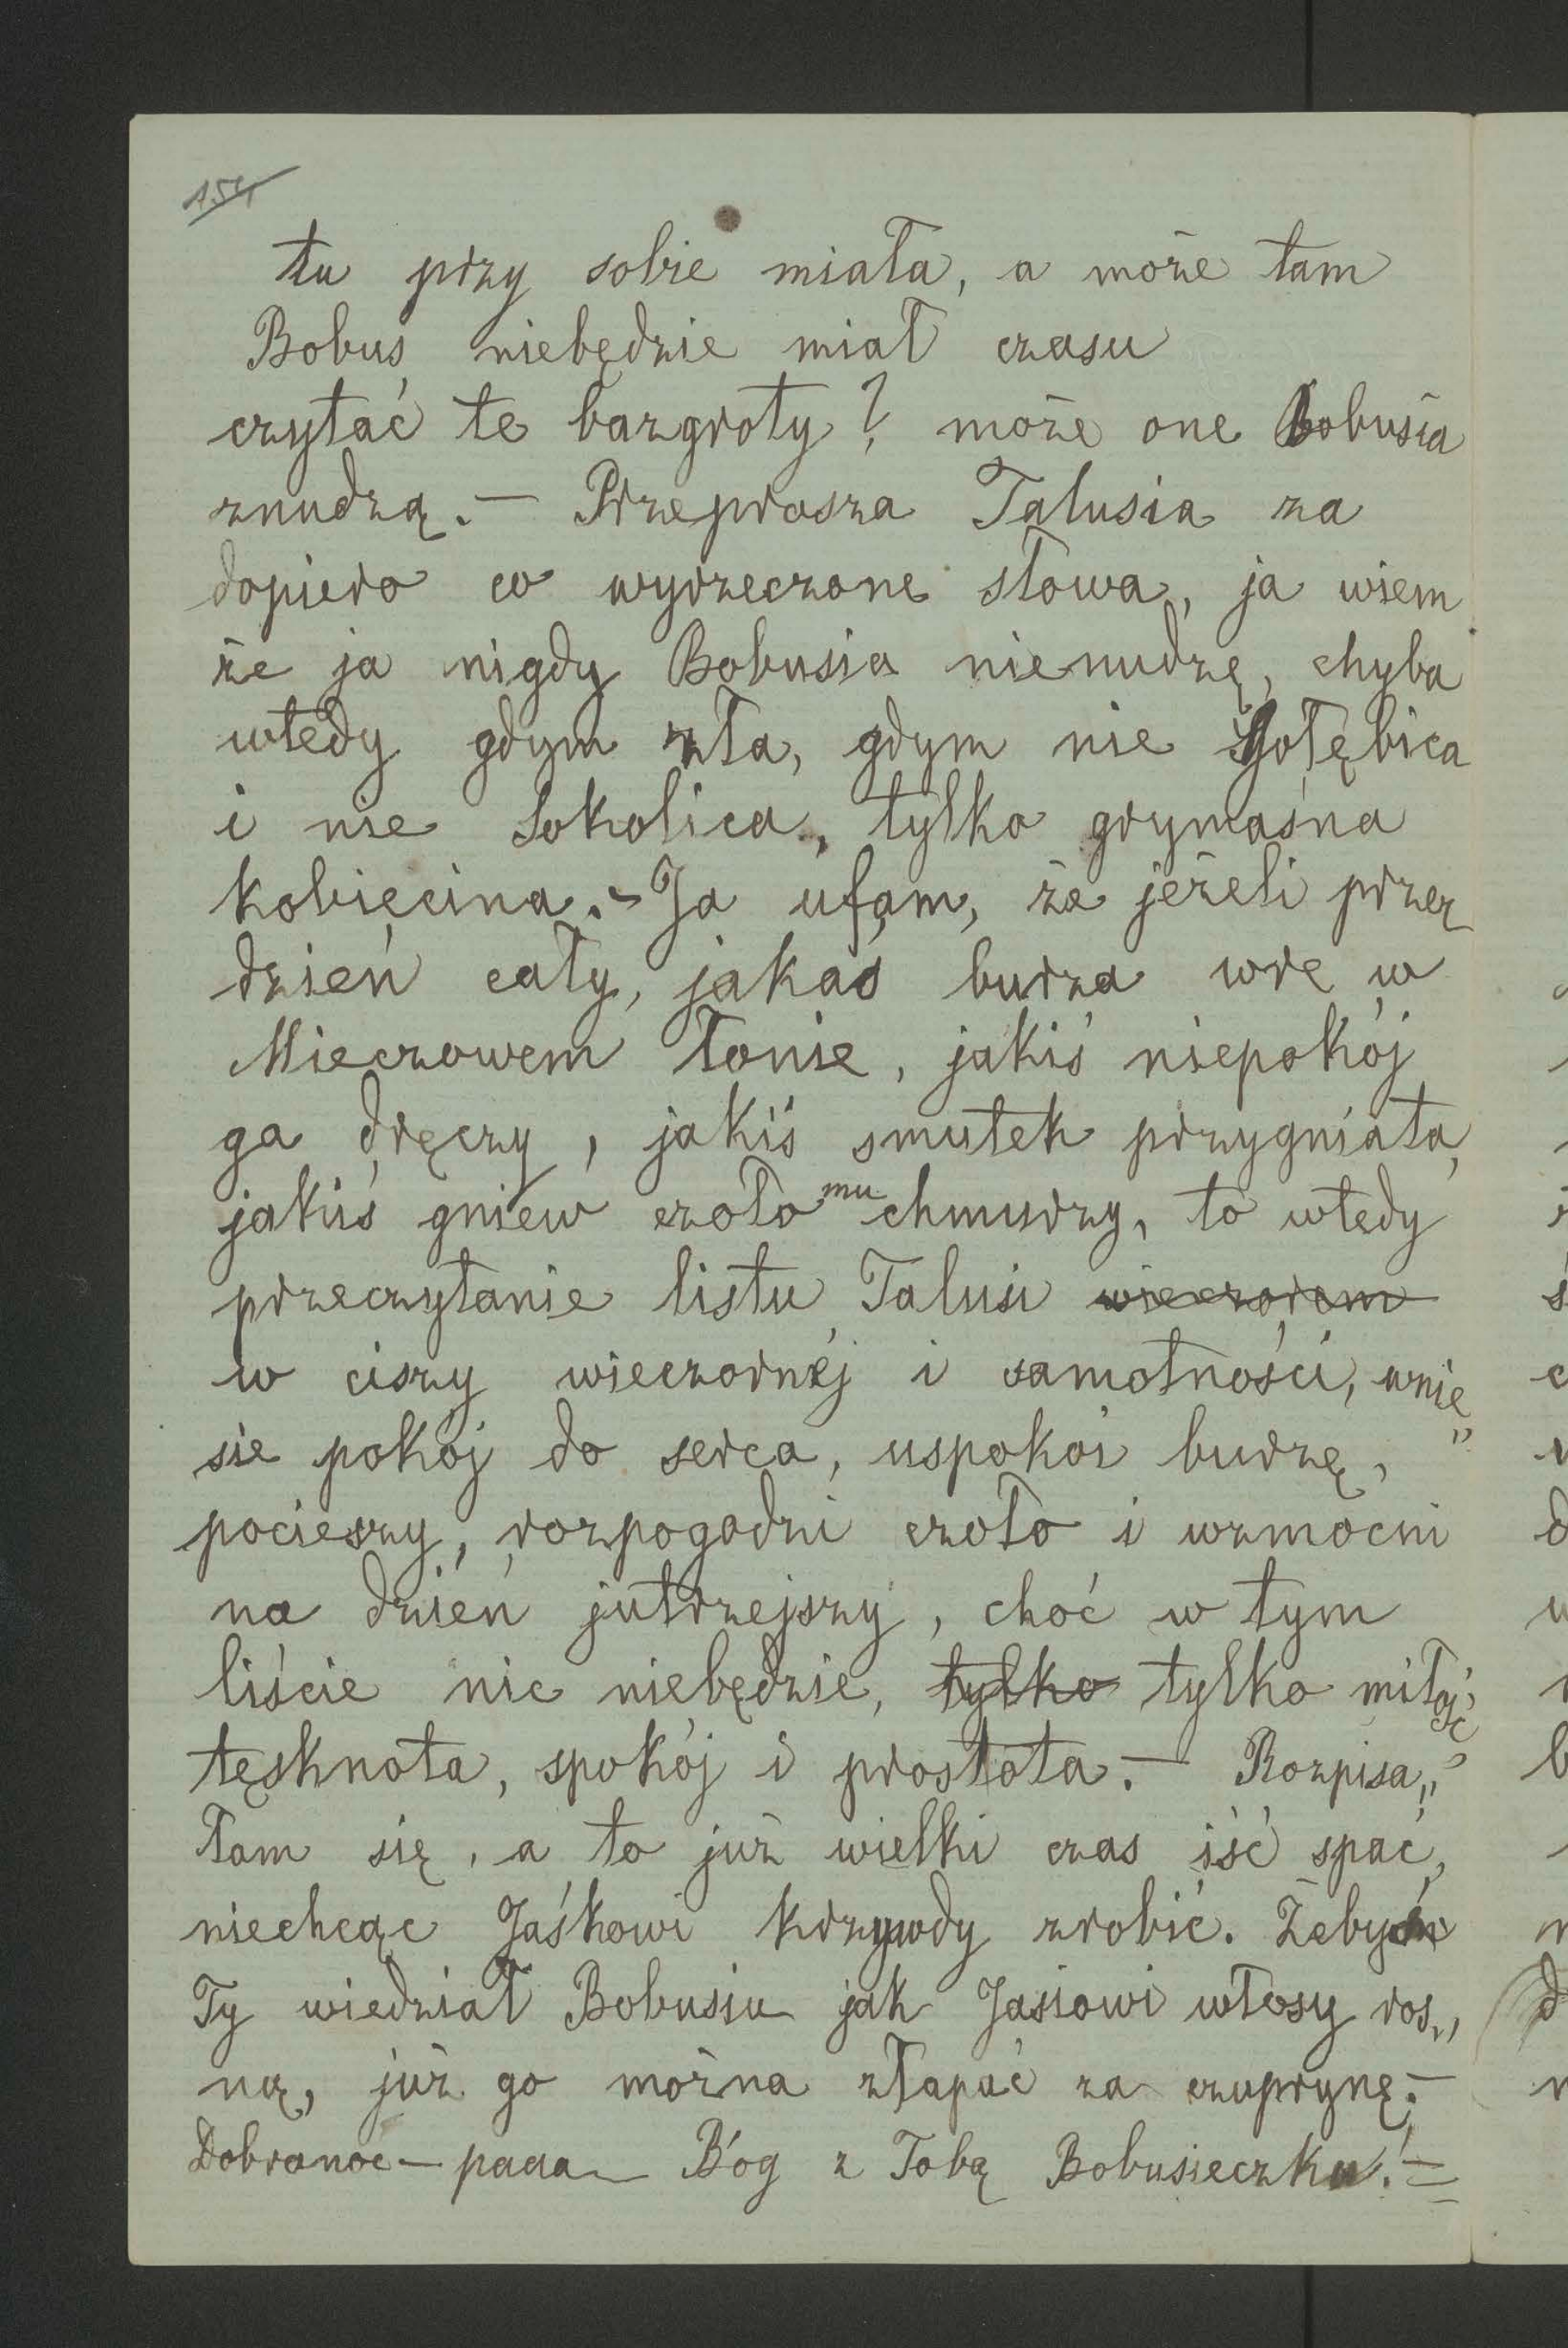 154
tu przy sobie miała, a może tam
Bobuś niebędzie miał czasu
czytać te bazgroły? może one Bobusia
znudzą. — Przeprasza Talusia za
dopiero co wyrzeczone słowa, ja wiem
że ja nigdy Bobusia nienudzę, chyba
wtedy gdym zła, gdym nie Gołębica
i nie Sokolica, tylko grymaśna
kobiécina. — Ja ufam, że jeżeli przez
dzień cały, jakaś burza wre w
Mieczowem łonie, jakiś niepokój
go dręczy, jakiś smutek przygniata,
jakiś gniew czoło mu chmurzy, to wtedy
przeczytanie listu Talusi wieczorem
w ciszy wieczornéj i samotności, wnie„
sie pokój do serca, uspokoi burzę,
pocieszy, rozpogodzi czoło i wzmocni
na dzień jutrzejszy, choć w tym
liście nic niebędzie, tylko tylko miłość,
tęsknota, spokój i prostota. — Rozpisa„
łam się, a to już wielki czas iść spać,
niechcąc Jaśkowi krzywdy zrobić. Żebyś
Ty wiedział Bobusiu jak Jasiowi włosy ros„
ną, już go można złapać za czuprynę. —
Dobranoc — papa — Bóg z Tobą Bobusieczku! =